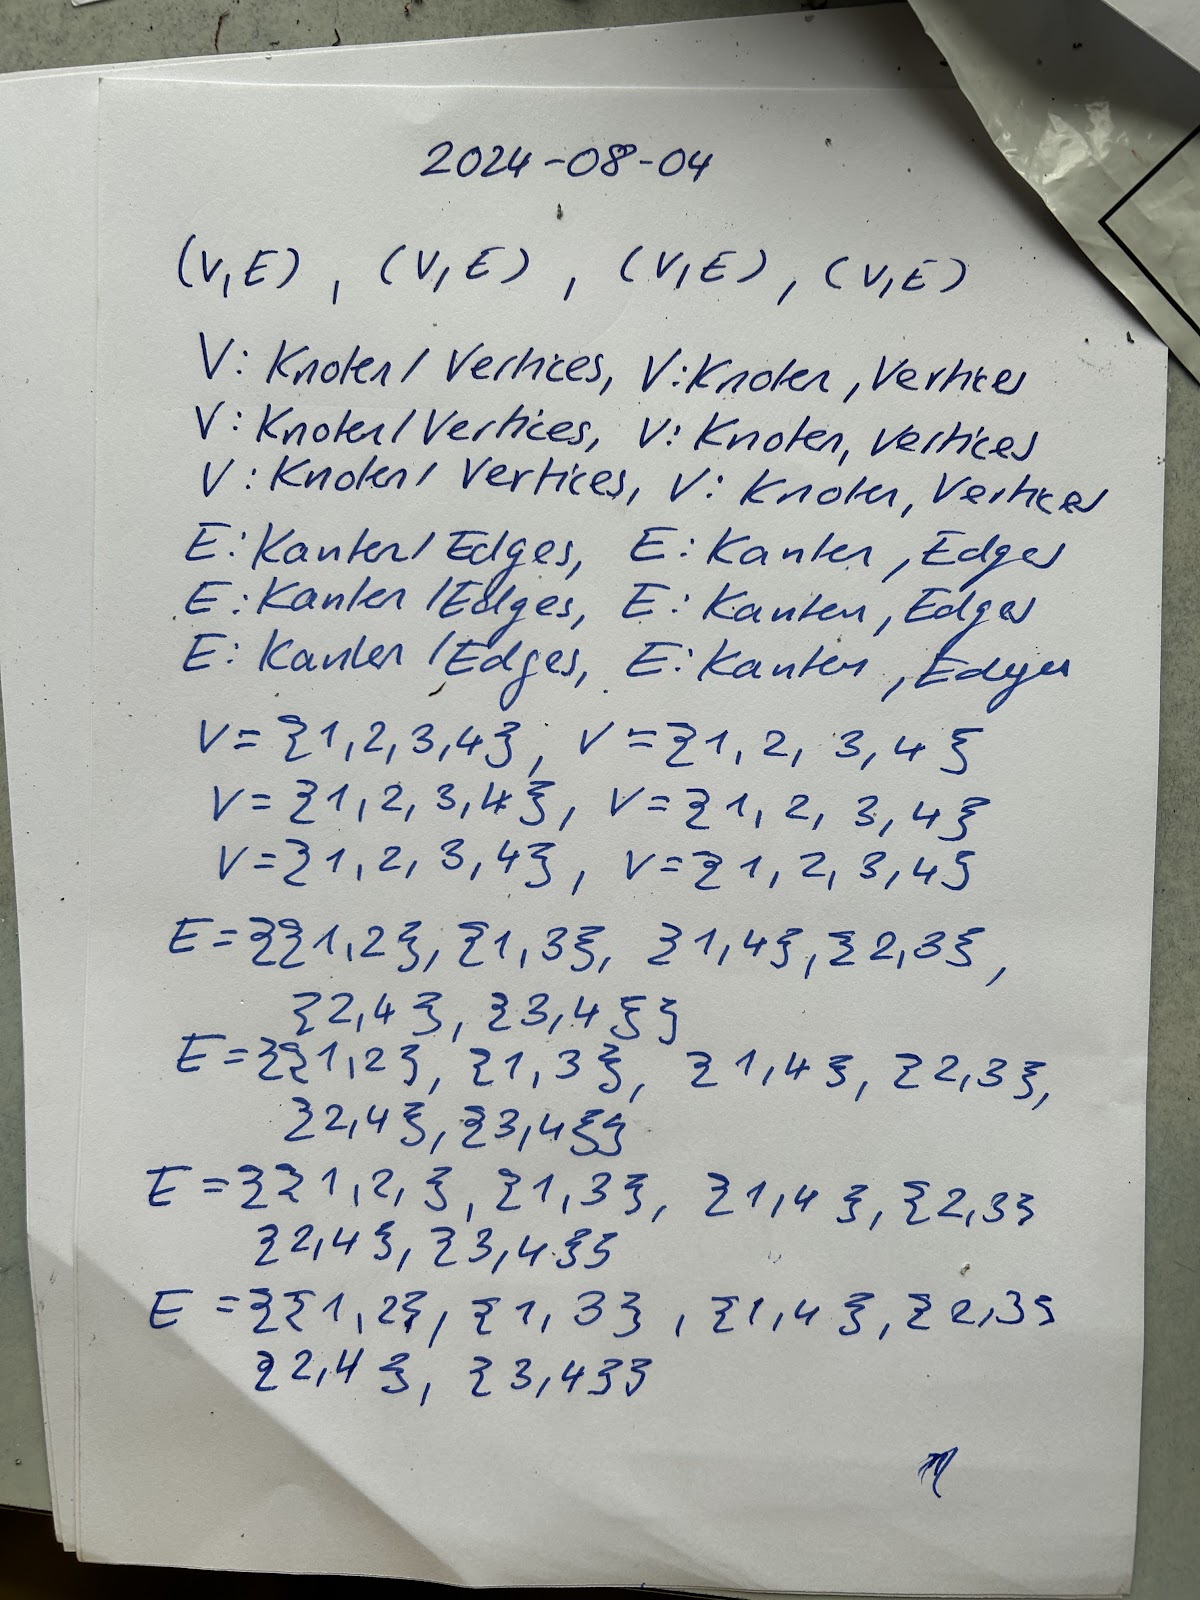 2024-08-04
(V,E), (V,E), (V,E), (V,E)
V: Knoten/Vertices, V: Knoten, Vertices
V: Knoten/Vertices, V: Knoten, Vertices
V: Knoten/Vertices, V: Knoten, Vertices
E: Kanten/Edges, E: Kanten, Edges
E: Kanten/Edges, E: Kanten, Edges
E: Kanten/Edges, E: Kanten, Edges
V={1,2,3,4}, V={1,2,3,4}
V={1,2,3,4}, V={1,2,3,4}
V={1,2,3,4}, V={1,2,3,4}
E={{1,2}, {1,3}, {1,4}, {2,3},
{2,4}, {3,4}}
E={{1,2}, {1,3}, {1,4}, {2,3},
{2,4}, {3,4}}
E={{1,2,}, {1,3}, {1,4}, {2,3}
{2,4}, {3,4}}
E={{1,2}, {1,3}, {1,4}, {2,3}
{2,4}, {3,4}}